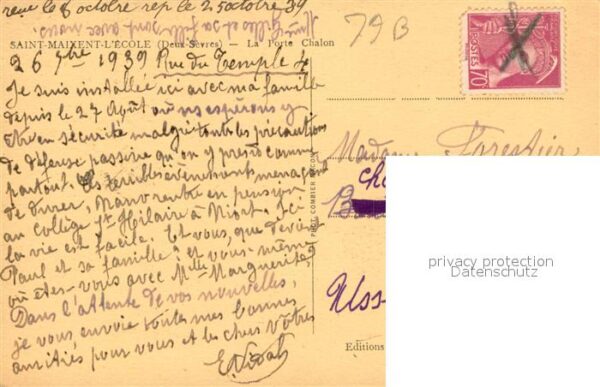 reçue le 8 octobre rep le 25 octobre 39
SAINT-MAIXENT-L'ÉCOLE (Deux-Sèvres) — La Porte Chalon
79 B
POSTES
70
26 7bre 1939 Rue du Temple 
Je suis installée ici avec ma famille
depuis le 27 Août où nous espérons y
être en sécurité malgré toutes les précautions
de défense passive qu'on y prend comme
partout. Les terribles évènements menaçant
de durer, rentre en pension
au collège St Hilaire à Niort. Ici
la vie est facile. Et vous, que devient
Paul et sa famille? et vous-même
où êtes-vous avec Melle Marguerite?
Dans l'attente de vos nouvelles,
je vous envoie toutes mes bonnes
amitiés pour vous et les chers vôtres
Madame Forestier
PHOT. COMBIER MACON
Uss
Editions
privacy protection
Datenschutz